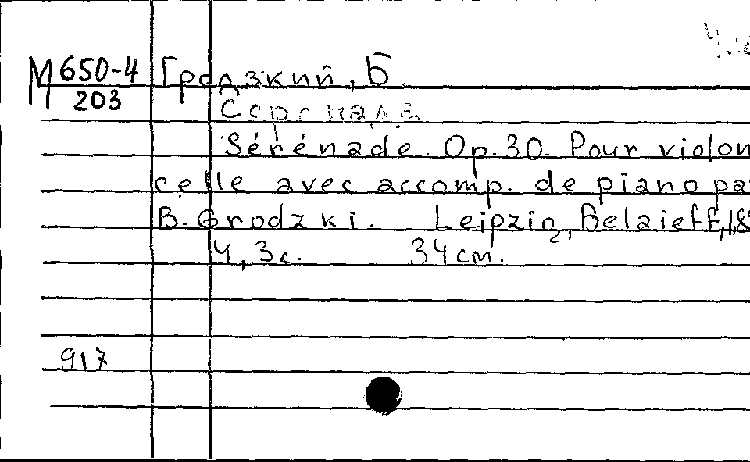 М 650-4 Гродзкий, Б
203
Серенада.
Sérénade. Op.30. Pour violon
celle avec accomp. de piano pa
B. Grodzki. Leipzig, Belaieff, 18
4, 3с. 34 cm.
917